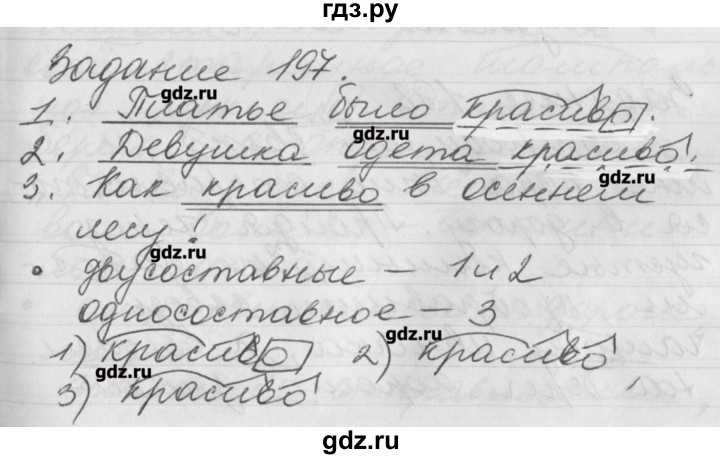 гдз.ру
Задание 197.
gdz.ru
1. Платье было красиво.
gdz.ru
2. Девушка одета красиво.
gdz.ru
3. Как красиво в осеннем
лесу!
gdz.ru
• двусоставные – 1 и 2
односоставное – 3
gdz.ru
1) красиво 2) красиво
gdz.ru
3) красиво
gdz.ru